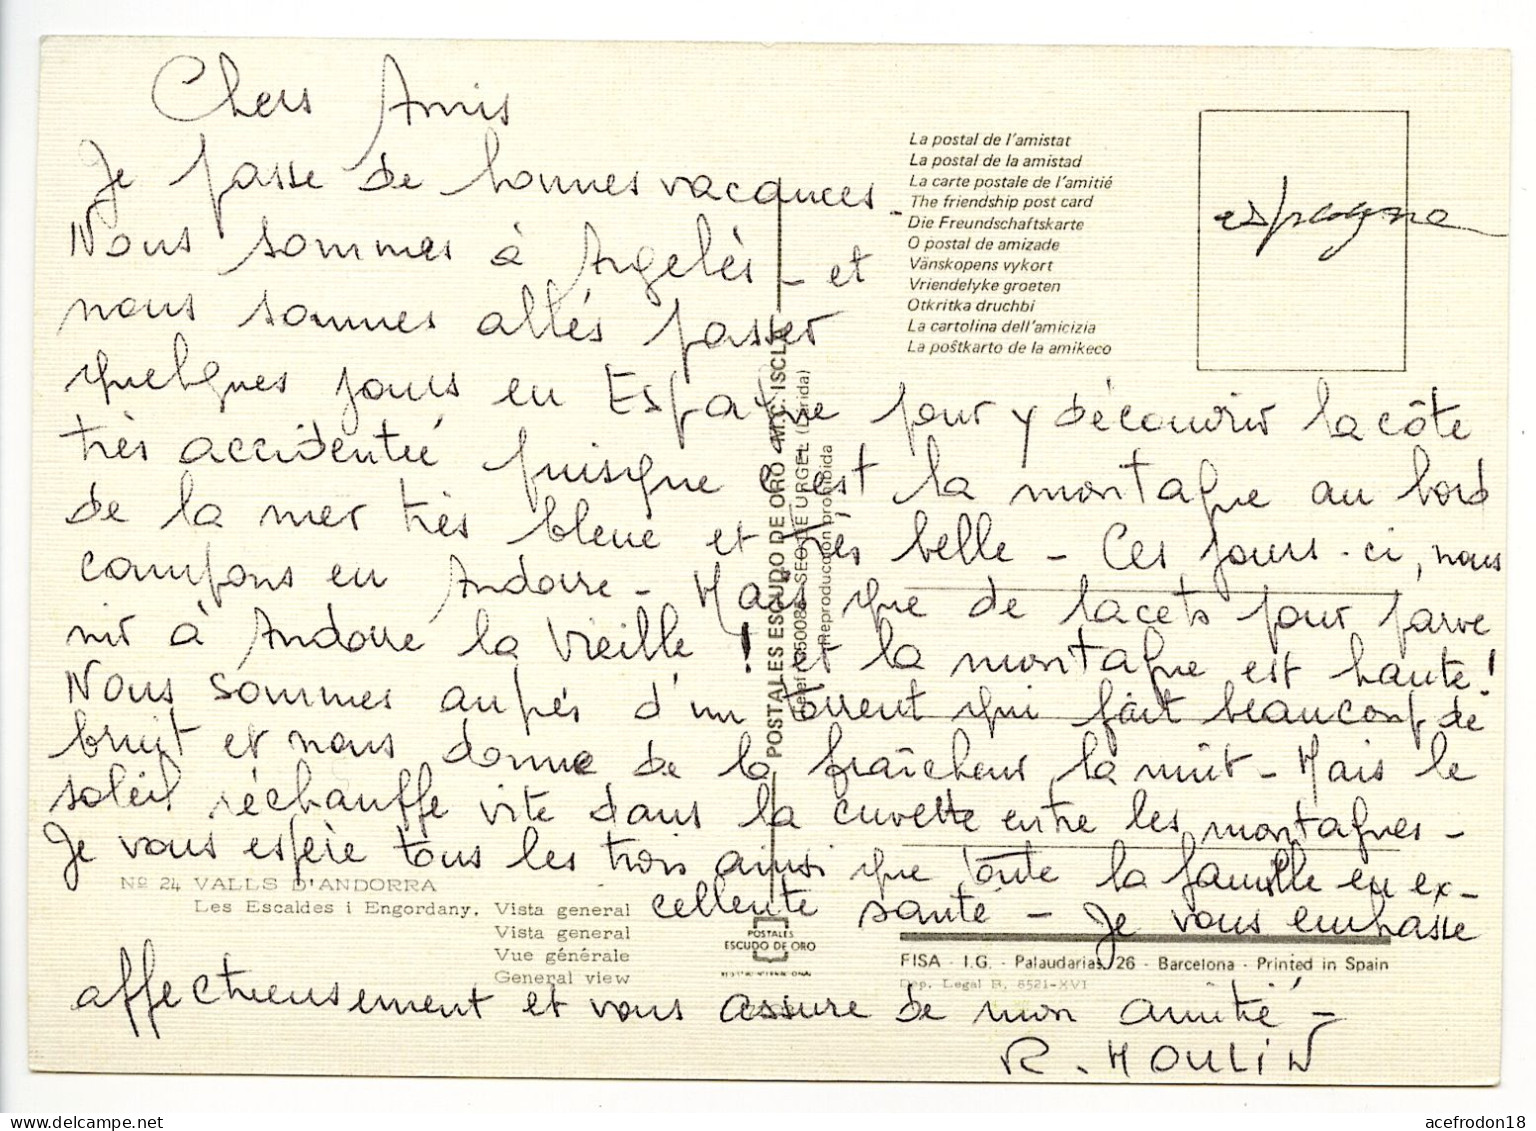 Chers Amis
Je passe de bonnes vacances -
Nous sommes à Argelès - et
nous sommes allés passer
quelques jours en Espagne pour y découvrir la côte
très accidentée puisque c'est la montagne au bord
de la mer très bleue et très belle - Ces jours-ci, nous
campons en Andorre - Mais que de lacets pour parve
nir à Andorre la Vieille ! et la montagne est haute !
Nous sommes auprès d'un torrent qui fait beaucoup de
bruit et nous donne de la fraîcheur la nuit - Mais le
soleil réchauffe vite dans la cuvette entre les montagnes -
Je vous espère tous les trois ainsi que toute la famille en ex-
cellente santé - Je vous embrasse
affectueusement et vous assure de mon amitié -
R. MOULIN
espagne
La postal de l'amistat
La postal de la amistad
La carte postale de l'amitié
The friendship post card
Die Freundschaftskarte
O postal de amizade
Vänskopens vykort
Vriendelyke groeten
Otkritka druchbi
La cartolina dell'amicizia
La poŝtkarto de la amikeco
POSTALES ESCUDO DE ORO - M.C. ISCLA
SEO DE URGEL (Lérida)
Reproducción prohibida
Nº 24 VALLS D'ANDORRA
Les Escaldes i Engordany. Vista general
Vista general
Vue générale
General view
POSTALES
ESCUDO DE ORO
FISA - I.G. - Palaudarias, 26 - Barcelona - Printed in Spain
Dep. Legal B. 8521-XVI
acefrodon18